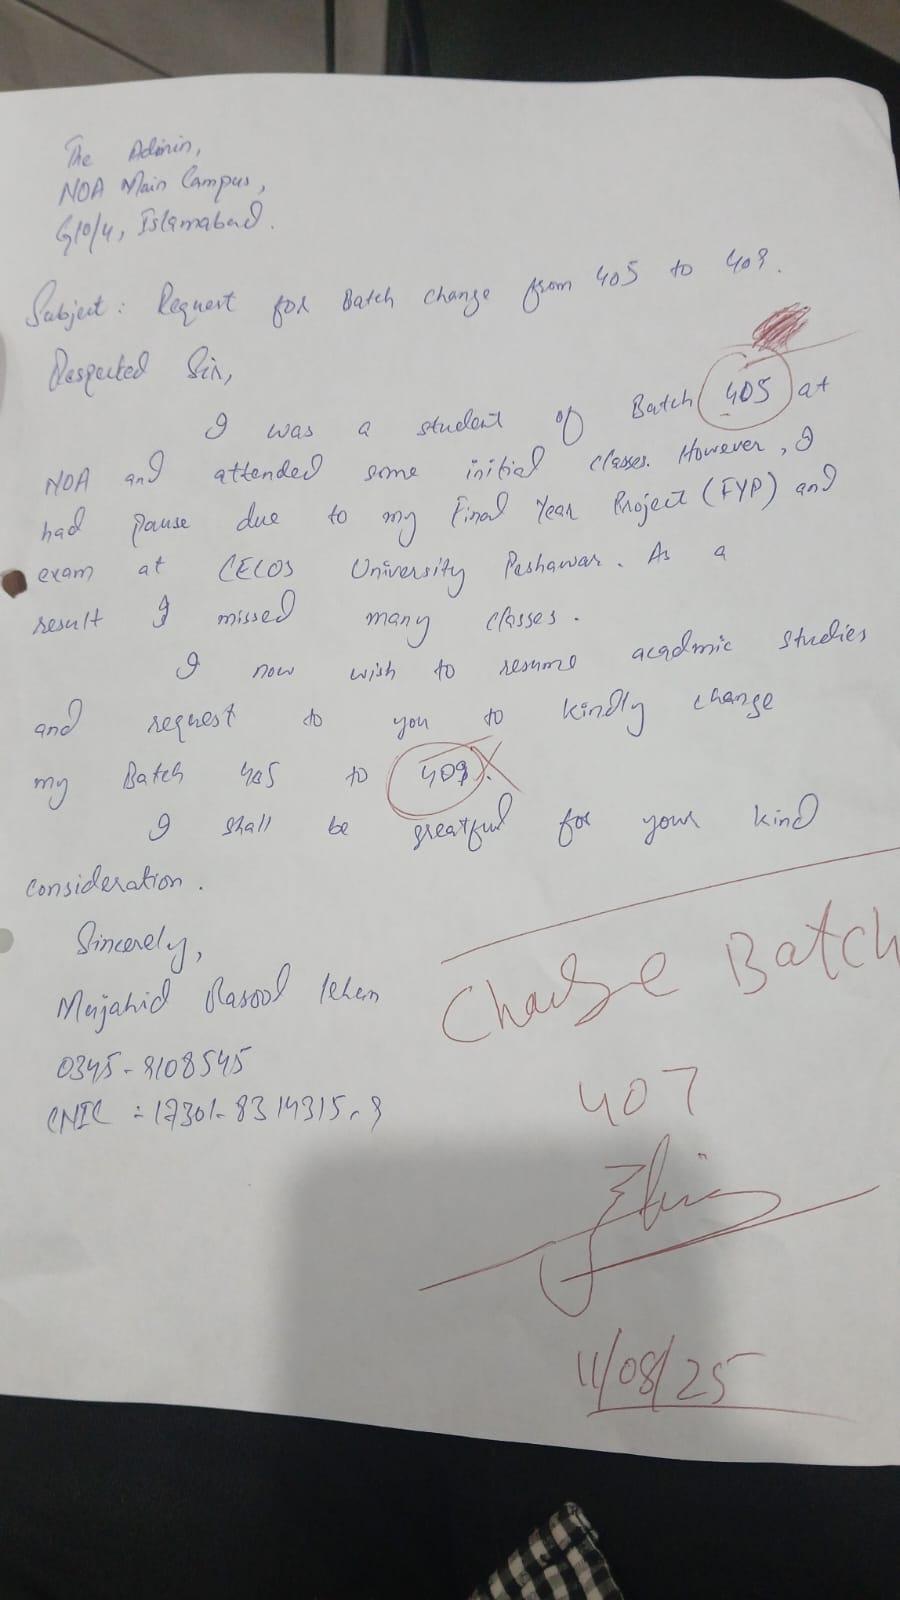 The Admin,
NOA Main Campus,
G10/4, Islamabad.
Subject: Request for Batch change from 405 to 409.
Respected Sir,
I was a student of Batch 405 at
NOA and attended some initial classes. However, I
had pause due to my Final Year Project (FYP) and
exam at CECOS University Peshawar. As a
result I missed many classes.
I now wish to resume acadmic studies
and request to you to kindly change
my Batch 405 to 409.
I shall be greatful for your kind
consideration.
Sincerely,
Mujahid Rasool Khan
0345-9108545
CNIC = 17301-8314315-9
Change Batch
407
11/08/25